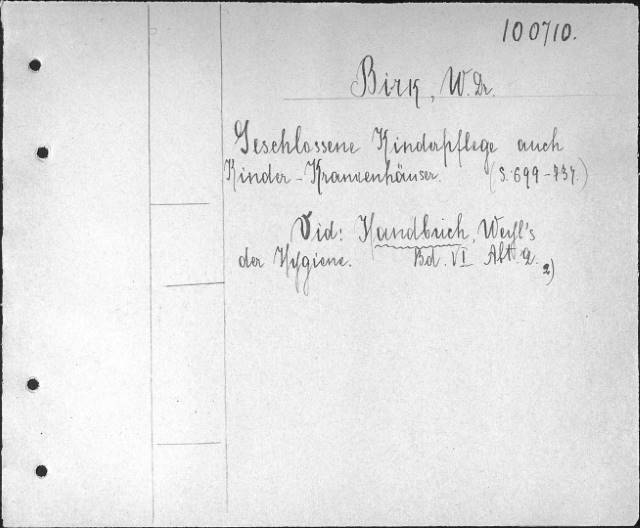 100710.
Birk, W. Dr.
Geschlossene Kinderpflege auch
Kinder-Krankenhäuser. (S. 699-737.)
Vid: Handbuch, Weyl's
der Hygiene. Bd. VI Abt. 2.
2)